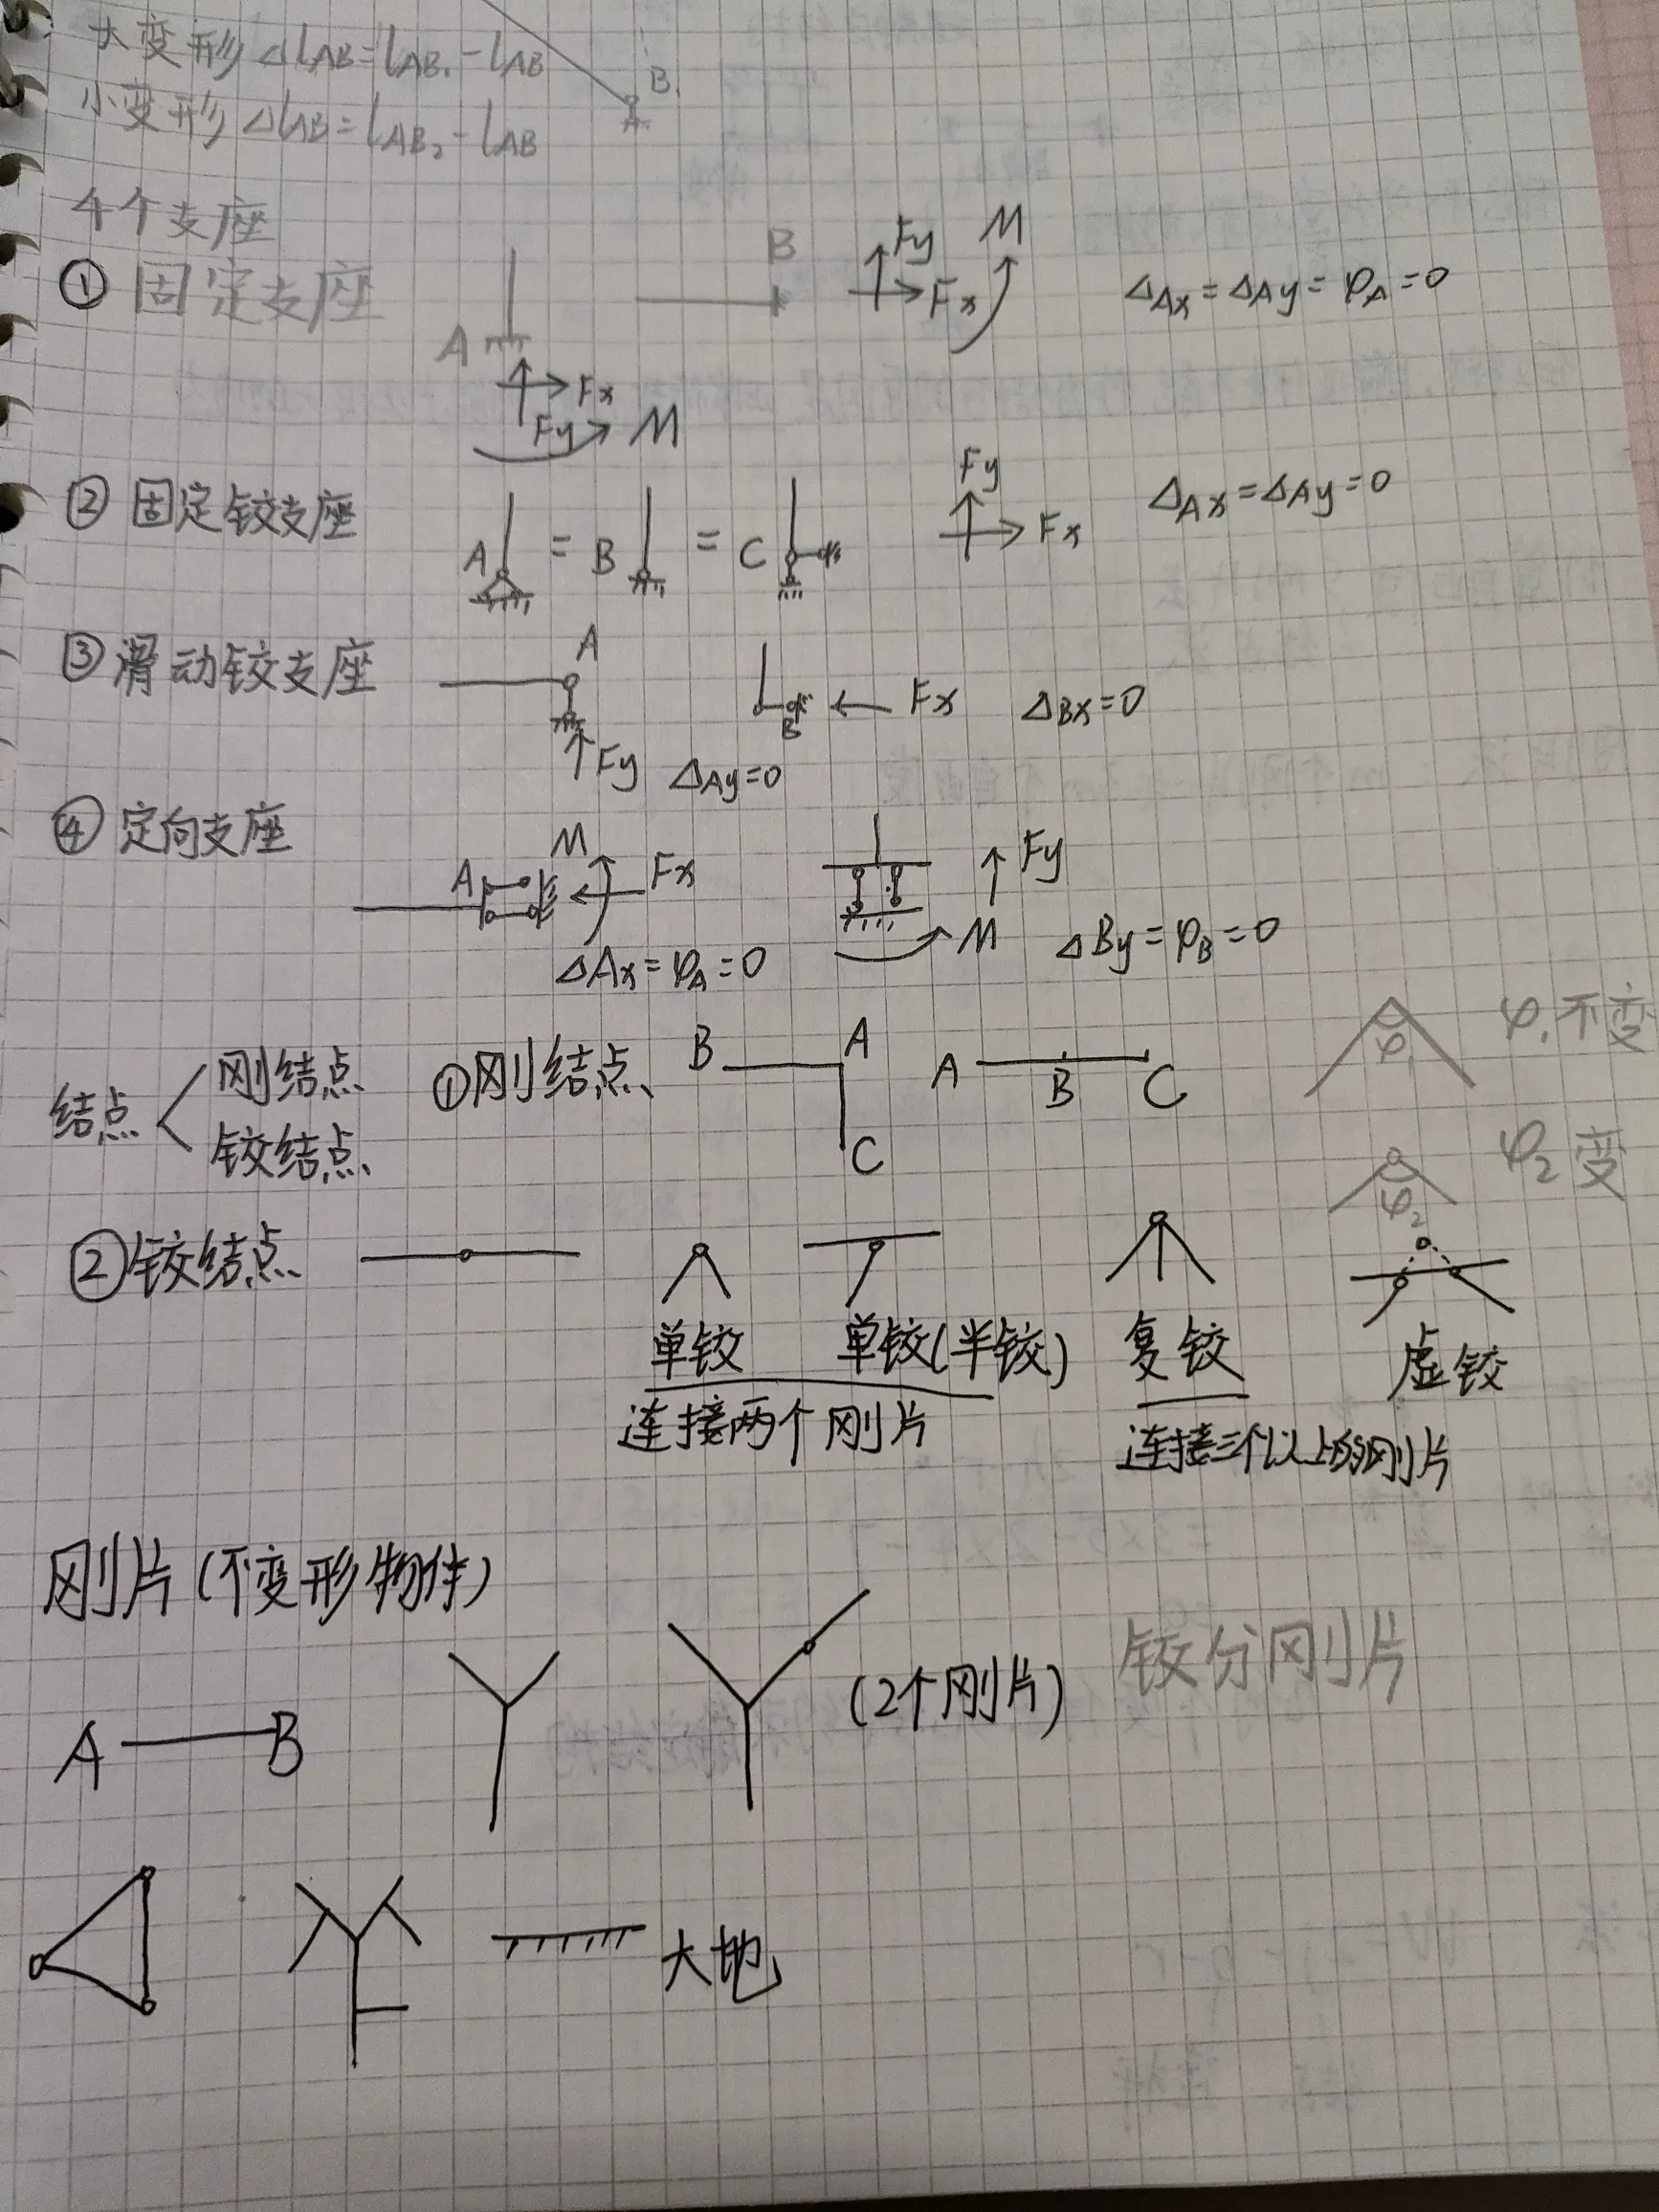 大变形 ΔlAB=lAB₁-lAB
B₁
小变形 ΔlAB=lAB₂-lAB
4个支座
① 固定支座 A Fx Fy M B Fy Fx M ΔAx=ΔAy=φA=0
② 固定铰支座 A = B = C Fy Fx ΔAx=ΔAy=0
③ 滑动铰支座 A Fy ΔAy=0 B Fx ΔBx=0
④ 定向支座 A M Fx ΔAx=φA=0 Fy M ΔBy=φB=0
结点 刚结点 铰结点
①刚结点 B A C A B C φ₁ φ₁不变
φ₂ φ₂变
②铰结点
单铰 单铰(半铰) 复铰 虚铰
连接两个刚片 连接三个以上的刚片
刚片(不变形物体)
A B (2个刚片) 铰分刚片
大地